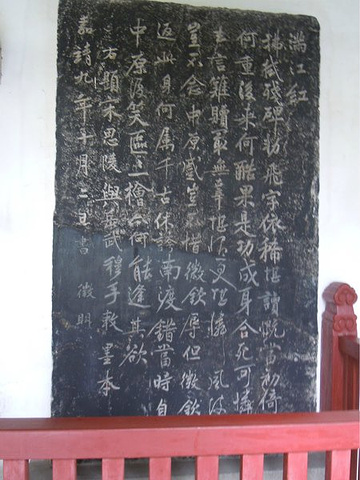 滿江紅
拂拭殘碑勑飛字依稀堪讀慨當初倚
何重後來何酷果是功成身合死可憐
去言難贖最無辜堪恨更堪憐風波
豈不念中原蹙豈不惜徽欽辱但徽欽
返此身何屬千古休誇南渡錯當時自
中原復笑區區一檜亦何能逢其欲
右題宋思陵與岳武穆手敕墨本
嘉靖九年十月二日書 徵明